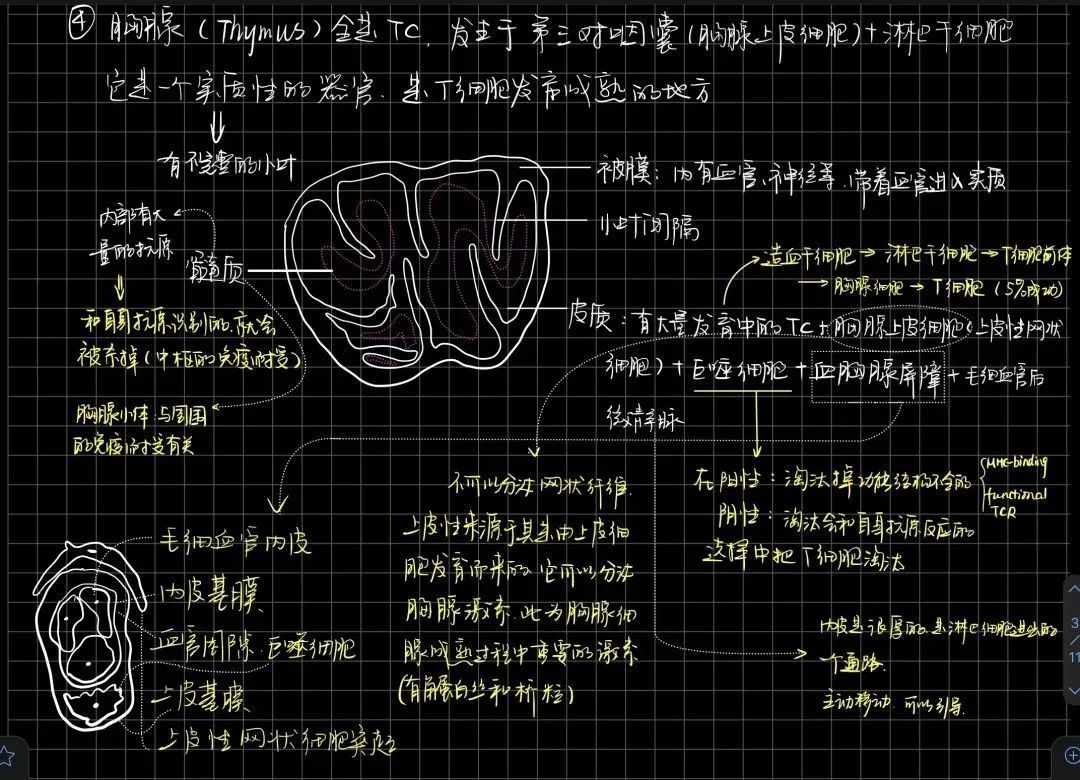 ④ 胸腺 (Thymus) 全是TC, 发生于第三对咽囊(胸腺上皮细胞)+淋巴干细胞
它是一个实质性的器官, 是T细胞发育成熟的地方
有不完整的小叶
被膜: 内有血管、神经等, 带着血管进入实质
小叶间隔
内部有大
量的抗原
髓质
造血干细胞→淋巴干细胞→T细胞前体
→胸腺细胞→T细胞 (5%成功)
和自身抗原识别的, 就会
被弃掉(中枢的免疫耐受)
皮质: 有大量发育中的TC+胸腺上皮细胞(上皮性网状
细胞)+巨噬细胞+血胸腺屏障+毛细血管后
微静脉
胸腺小体 与周围
的免疫耐受有关
不可以分泌网状纤维,
上皮性来源于其是由上皮细
胞发育而来的, 它可以分泌
胸腺激素, 此为胸腺细
胞成熟过程中重要的激素
(有角蛋白丝和桥粒)
在阳性: 淘汰掉功能结构不全的
MHC-binding
functional
TCR
阴性: 淘汰会和自身抗原反应的
选择中把T细胞淘汰
毛细血管内皮
内皮基膜
血管周隙 巨噬细胞
上皮基膜
上皮性网状细胞突起
内皮是很厚的, 是淋巴细胞进出的
一个通路,
主动移动, 可以引导,
3
11